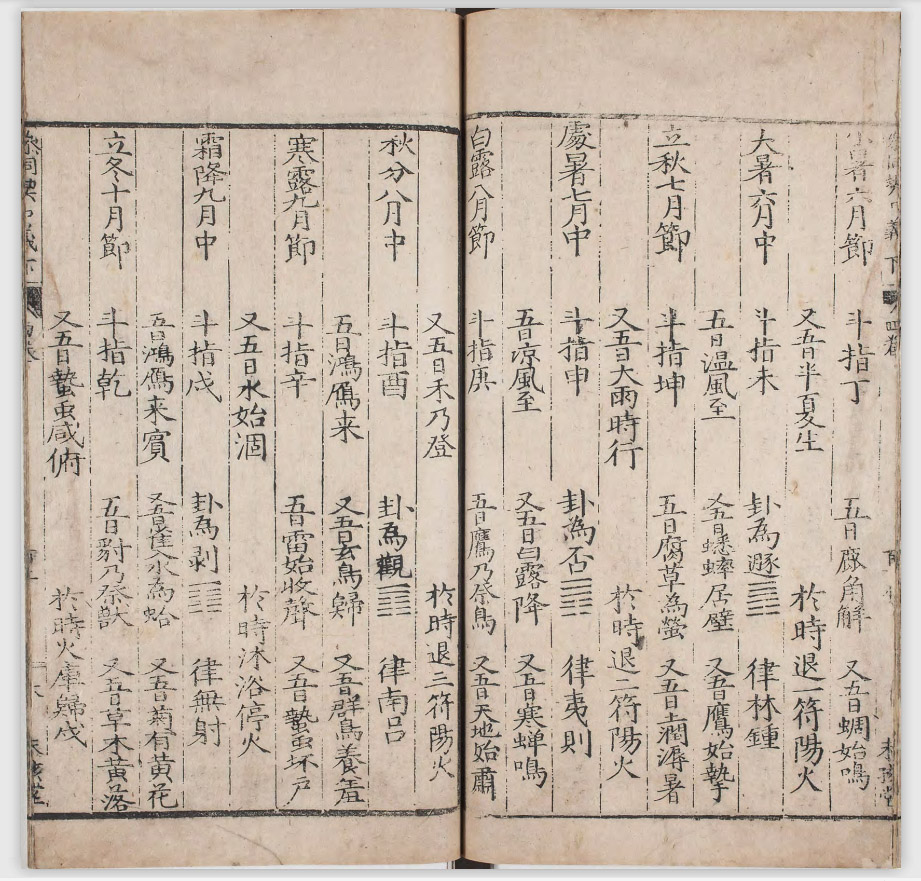 暑六月節 斗指丁 五日鹿角解 又五日蜩始鳴
又五日半夏生 於時退一符陽火
大暑六月中 斗指未 卦為遯䷠ 律林鍾
五日温風至 又五日蟋蟀居壁 又五日鷹始摯
立秋七月節 斗指坤 五日腐草為螢 又五日土潤溽暑
又五日大雨時行 於時退二符陽火
處暑七月中 斗指申 卦為否䷋ 律夷則
五日凉風至 又五日白露降 又五日寒蝉鳴
白露八月節 斗指庚 五日鷹乃祭鳥 又五日天地始肅
又五日禾乃登 於時退三符陽火
秋分八月中 斗指酉 卦為觀䷓ 律南吕
五日鴻鴈来 又五日玄鳥歸 又五日群鳥養羞
寒露九月節 斗指辛 五日雷始收聲 又五日蟄虫坏户
又五日水始涸 於時沐浴停火
霜降九月中 斗指戌 卦為剥䷖ 律無射
五日鴻鴈来賓 又五日雀入水為蛤 又五日菊有黄花
立冬十月節 斗指乾 五日豺乃祭獸 又五日草木黄落
又五日蟄虫咸俯 於時火庫歸戌